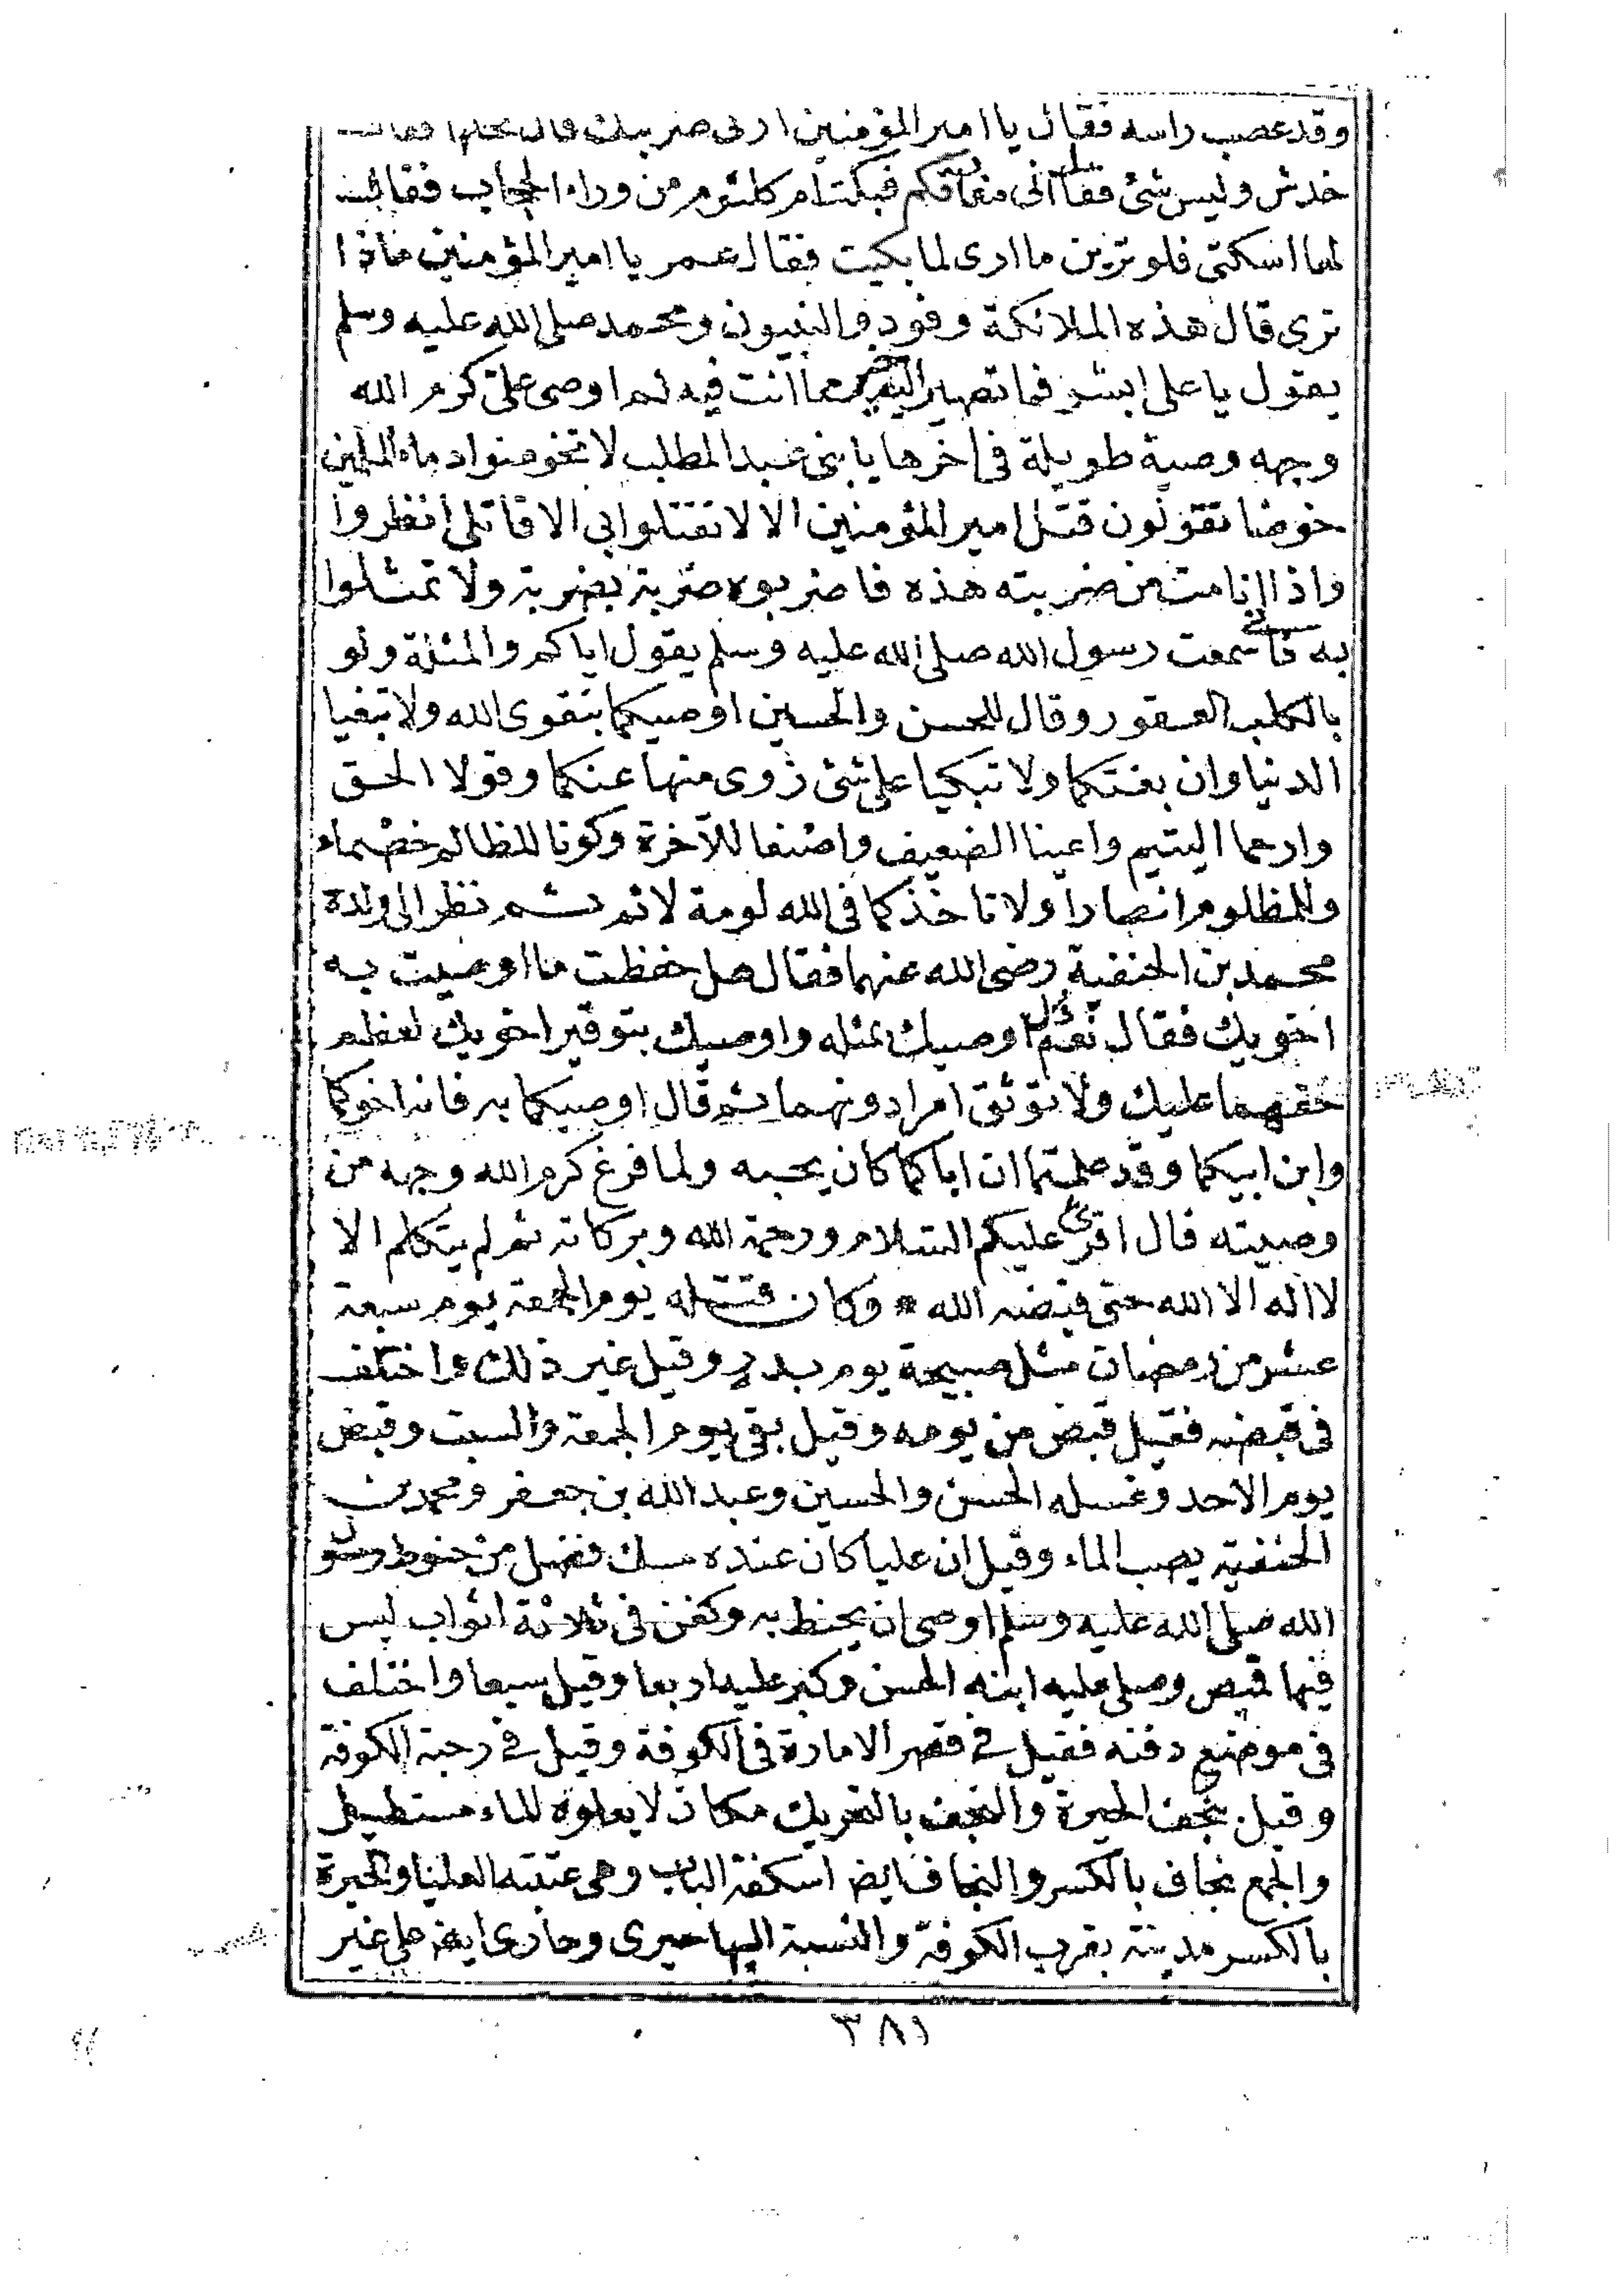 وقد عصب راسه فقال يا امير المؤمنين ارنى ضربتك قال فحلها فقلت
خدش وليس شئ فقال انى مفارقكم فبكت ام كلثوم من وراء الحجاب فقال
لها اسكتى فلو ترين ما ارى لما بكيت فقال عمر يا امير المؤمنين ماذا
ترى قال هذه الملائكة وفود والنبيون ومحمد صلى الله عليه وسلم
يقول يا على ابشر فما تصير اليه خير مما انت فيه ثم اوصى على كرم الله
وجهه وصية طويلة فى اخرها يا بنى عبد المطلب لا تخوضوا دماء المسلمين
خوضا تقولون قتل امير المؤمنين الا لا تقتلوا بى الا قاتلى انظروا
واذا انا مت من ضربته هذه فاضربوه ضربة بضربة ولا تمثلوا
به فانى سمعت رسول الله صلى الله عليه وسلم يقول اياكم والمثلة ولو
بالكلب العقور وقال للحسن والحسين اوصيكما بتقوى الله ولا تبغيا
الدنيا وان بغتكما ولا تبكيا على شئ زوى منها عنكما وقولا الحق
وارحما اليتيم واعينا الضعيف واصنعا للآخرة وكونا للظالم خصماء
وللمظلوم انصارا ولا تاخذكما فى الله لومة لائم ثم نظر الى ولده
محمد بن الحنفية رضى الله عنهما فقال هل حفظت ما اوصيت به
اخويك فقال نعم قال اوصيك بمثله واوصيك بتوقير اخويك لعظم
حقهما عليك ولا توثق امرا دونهما ثم قال اوصيكما به فانه اخوكما
وابن ابيكما وقد علمتما ان اباكما كان يحبه ولما فرغ كرم الله وجهه من
وصيته قال اقرئ عليكم السلام ورحمة الله وبركاته ثم لم يتكلم الا
لا اله الا الله حتى قبضه الله * وكان قتله يوم الجمعة يوم سبعة
عشر من رمضان مثل صبيحة يوم بدر وقيل غير ذلك واختلف
فى قبضه فقيل قبض من يومه وقيل بقى يوم الجمعة والسبت وقبض
يوم الاحد وغسله الحسن والحسين وعبد الله بن جعفر ومحمد بن
الحنفية يصب الماء وقيل ان عليا كان عنده مسك فضل من حنوط رسول
الله صلى الله عليه وسلم اوصى ان يحنط به وكفن فى ثلاثة اثواب ليس
فيها قميص وصلى عليه ابنه الحسن وكبر عليه اربعا وقيل سبعا واختلف
فى موضع دفنه فقيل فى قصر الامارة فى الكوفة وقيل فى رحبة الكوفة
وقيل بنجف الحيرة والنجف بالتحريك مكان لا يعلوه الماء مستطيل
والجمع نجاف بالكسر والنجاف ايضا اسكفة الباب وهى عتبته العليا والحيرة
بالكسر مدينة بقرب الكوفة والنسبة اليها حيرى وحارى ايضا على غير
٣٨١